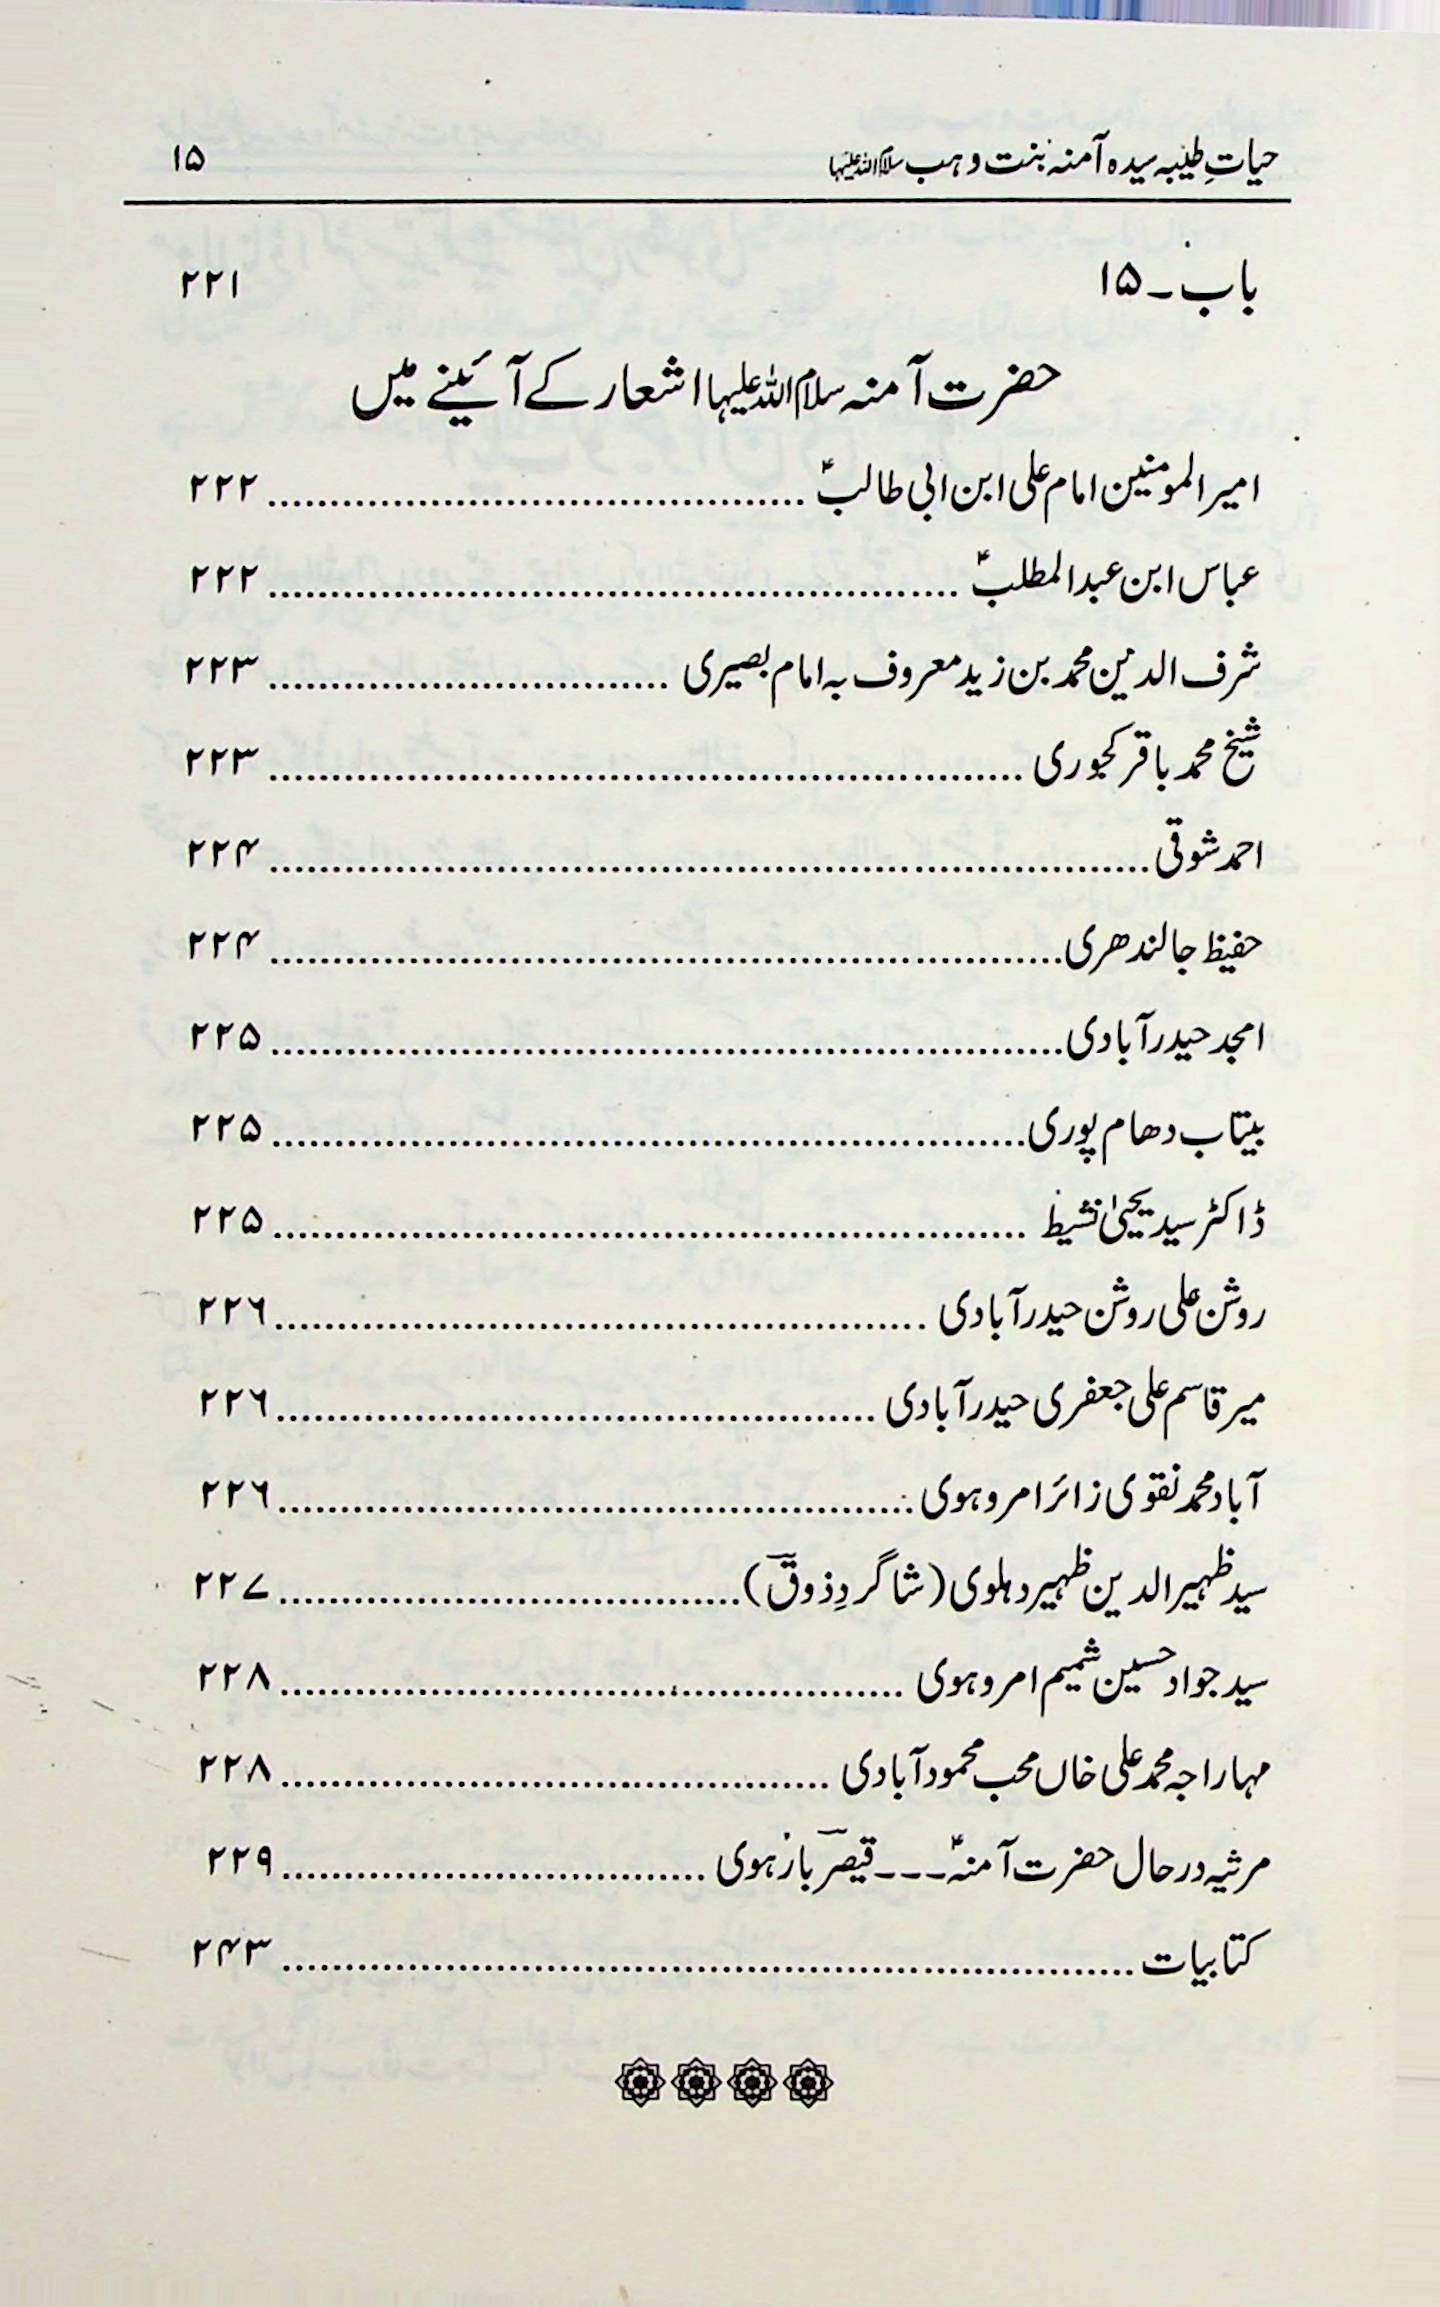 حیاتِ طیبہ سیدہ آمنہ بنت وہب سلام اللہ علیہا ۱۵
باب ۔ ۱۵ ۲۲۱
حضرت آمنہ سلام اللہ علیہا اشعار کے آئینے میں
امیر المومنین امام علی ابن ابی طالبؑ ........................................ ۲۲۲
عباس ابن عبدالمطلبؑ ........................................ ۲۲۲
شرف الدین محمد بن زید معروف بہ امام بصیری ........................................ ۲۲۳
شیخ محمد باقر کجوری ........................................ ۲۲۳
احمد شوقی ........................................ ۲۲۴
حفیظ جالندھری ........................................ ۲۲۴
امجد حیدرآبادی ........................................ ۲۲۵
بیتاب دھام پوری ........................................ ۲۲۵
ڈاکٹر سید یحییٰ نشیط ........................................ ۲۲۵
روشن علی روشن حیدرآبادی ........................................ ۲۲۶
میر قاسم علی جعفری حیدرآبادی ........................................ ۲۲۶
آباد محمد نقوی زائر امروہوی ........................................ ۲۲۶
سید ظہیر الدین ظہیر دہلوی (شاگردِ ذوقؔ) ........................................ ۲۲۷
سید جواد حسین شمیم امروہوی ........................................ ۲۲۸
مہاراجہ محمد علی خاں محب محمودآبادی ........................................ ۲۲۸
مرثیہ در حال حضرت آمنہؑ ۔۔۔ قیصرؔ بارہوی ........................................ ۲۲۹
کتابیات ........................................ ۲۴۳